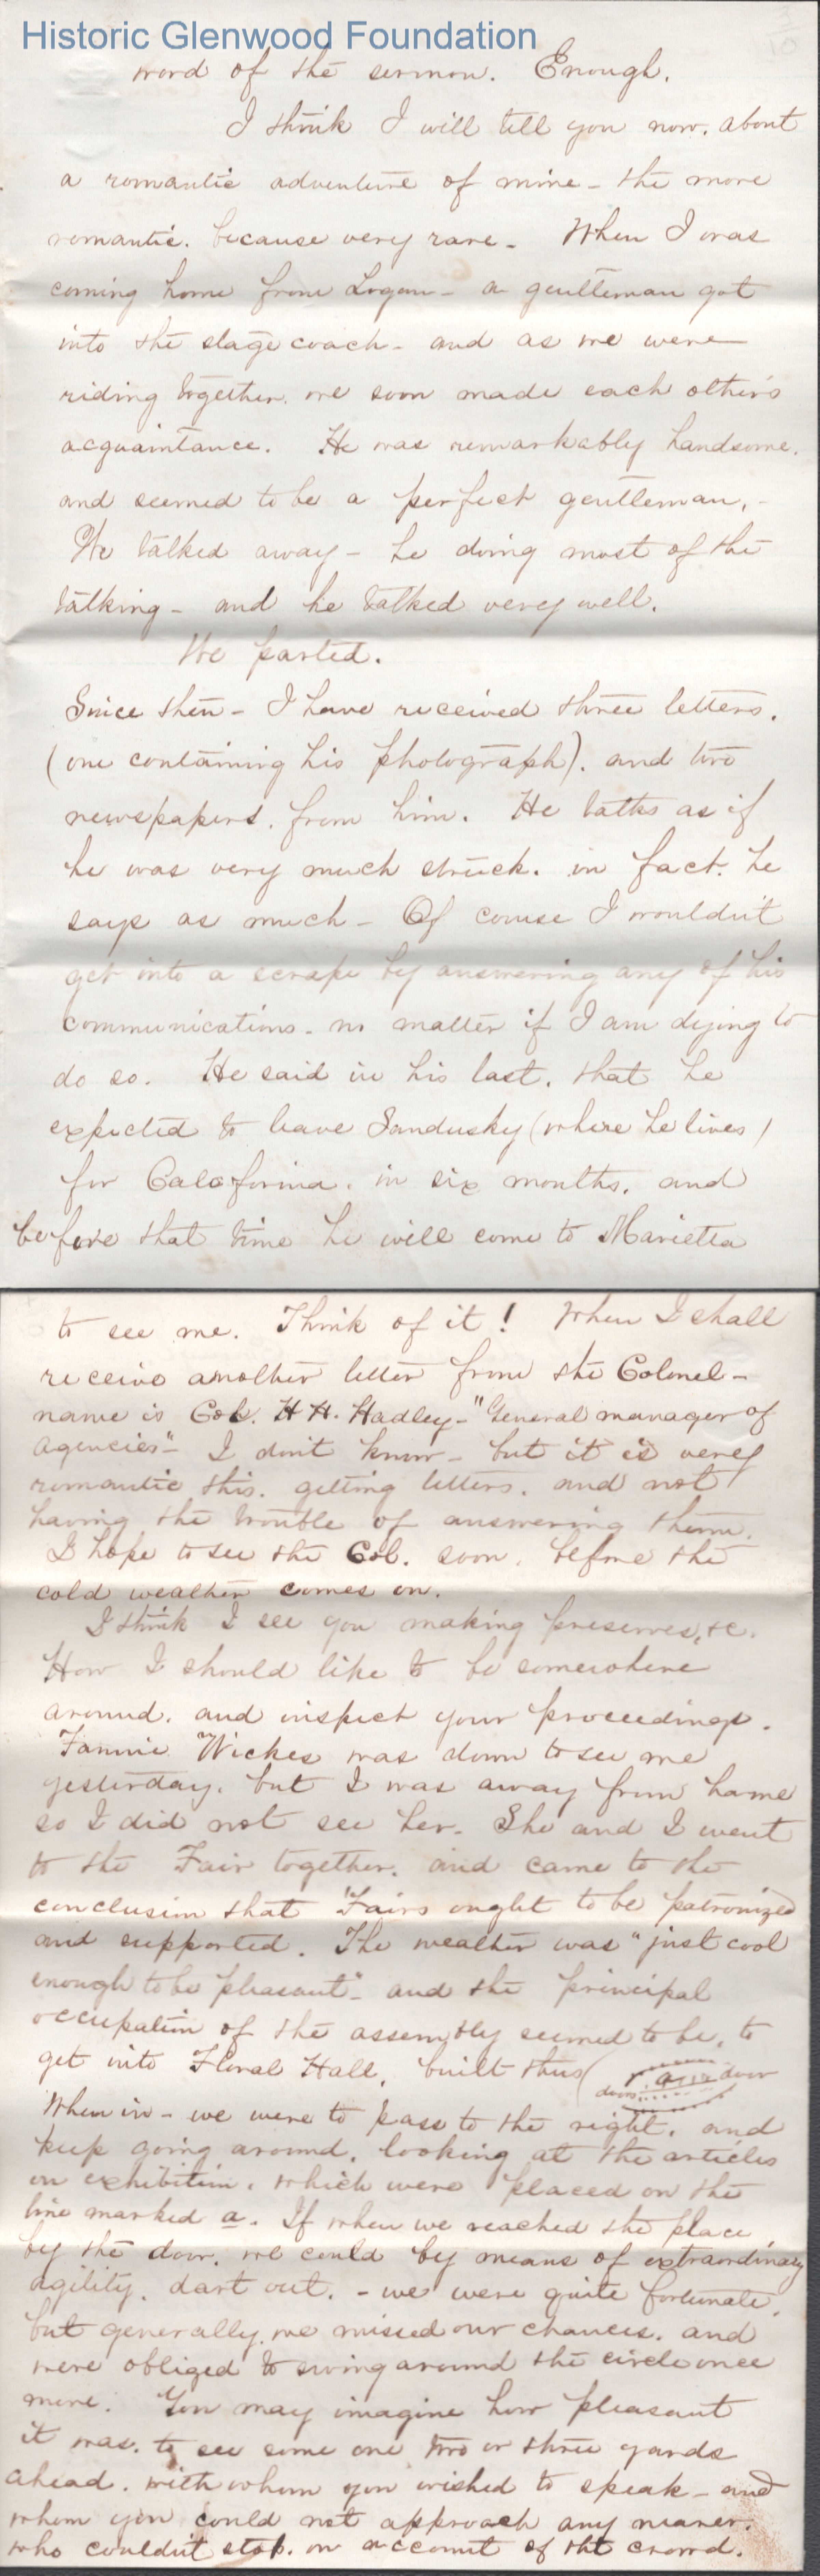 Historic Glenwood Foundation
3/10
word of the sermon. Enough.
I think I will tell you now, about
a romantic adventure of mine - the more
romantic, because very rare - When I was
coming home from Logan - a gentleman got
into the stage coach - and as we were
riding together, we soon made each other's
acquaintance. He was remarkably handsome,
and seemed to be a perfect gentleman, -
We talked away - he doing most of the
talking - and he talked very well.
We parted.
Since then - I have received three letters,
(one containing his photograph), and two
newspapers, from him. He talks as if
he was very much struck, in fact, he
says as much - Of course I wouldn't
get into a scrape by answering any of his
communications - no matter if I am dying to
do so. He said in his last, that he
expected to leave Sandusky (where he lives)
for California, in six months, and
before that time he will come to Marietta
to see me. Think of it! When I shall
receive another letter from the Colonel -
name is Col. H H. Hadley - "General manager of
Agencies" - I don't know - but it is very
romantic this, getting letters, and not
having the trouble of answering them.
I hope to see the Col. soon, before the
cold weather comes on.
I think I see you making preserves, &c.
How I should like to be somewhere
around, and inspect your proceedings.
Fannie Wickes was down to see me
yesterday, but I was away from home
so I did not see her - She and I went
to the Fair together, and came to the
conclusion that "Fairs ought to be patronized
and supported. The weather was "just cool
enough to be pleasant" - and the principal
occupation of the assembly seemed to be, to
get into Floral Hall, built thus (
door a door
When in - we were to pass to the right, and
keep going around, looking at the articles
on exhibition, which were placed on the
line marked a. If when we reached the place
by the door, we could by means of extraordinary
agility, dart out, - we were quite fortunate,
but generally, we missed our chances, and
were obliged to swing around the circle once
more. You may imagine how pleasant
it was, to see some one two or three yards
ahead, with whom you wished to speak - and
whom you could not approach any nearer,
who couldn't stop, on account of the crowd.